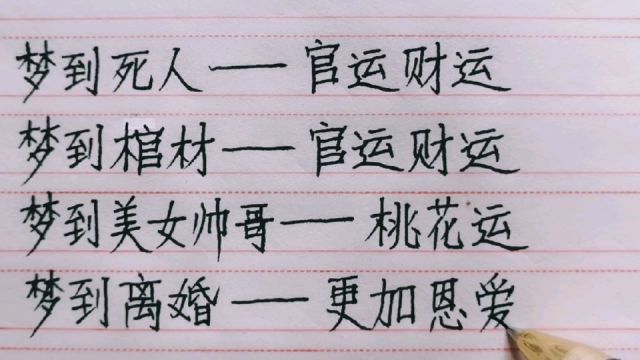 梦到死人——官运财运
梦到棺材——官运财运
梦到美女帅哥——桃花运
梦到离婚——更加恩爱